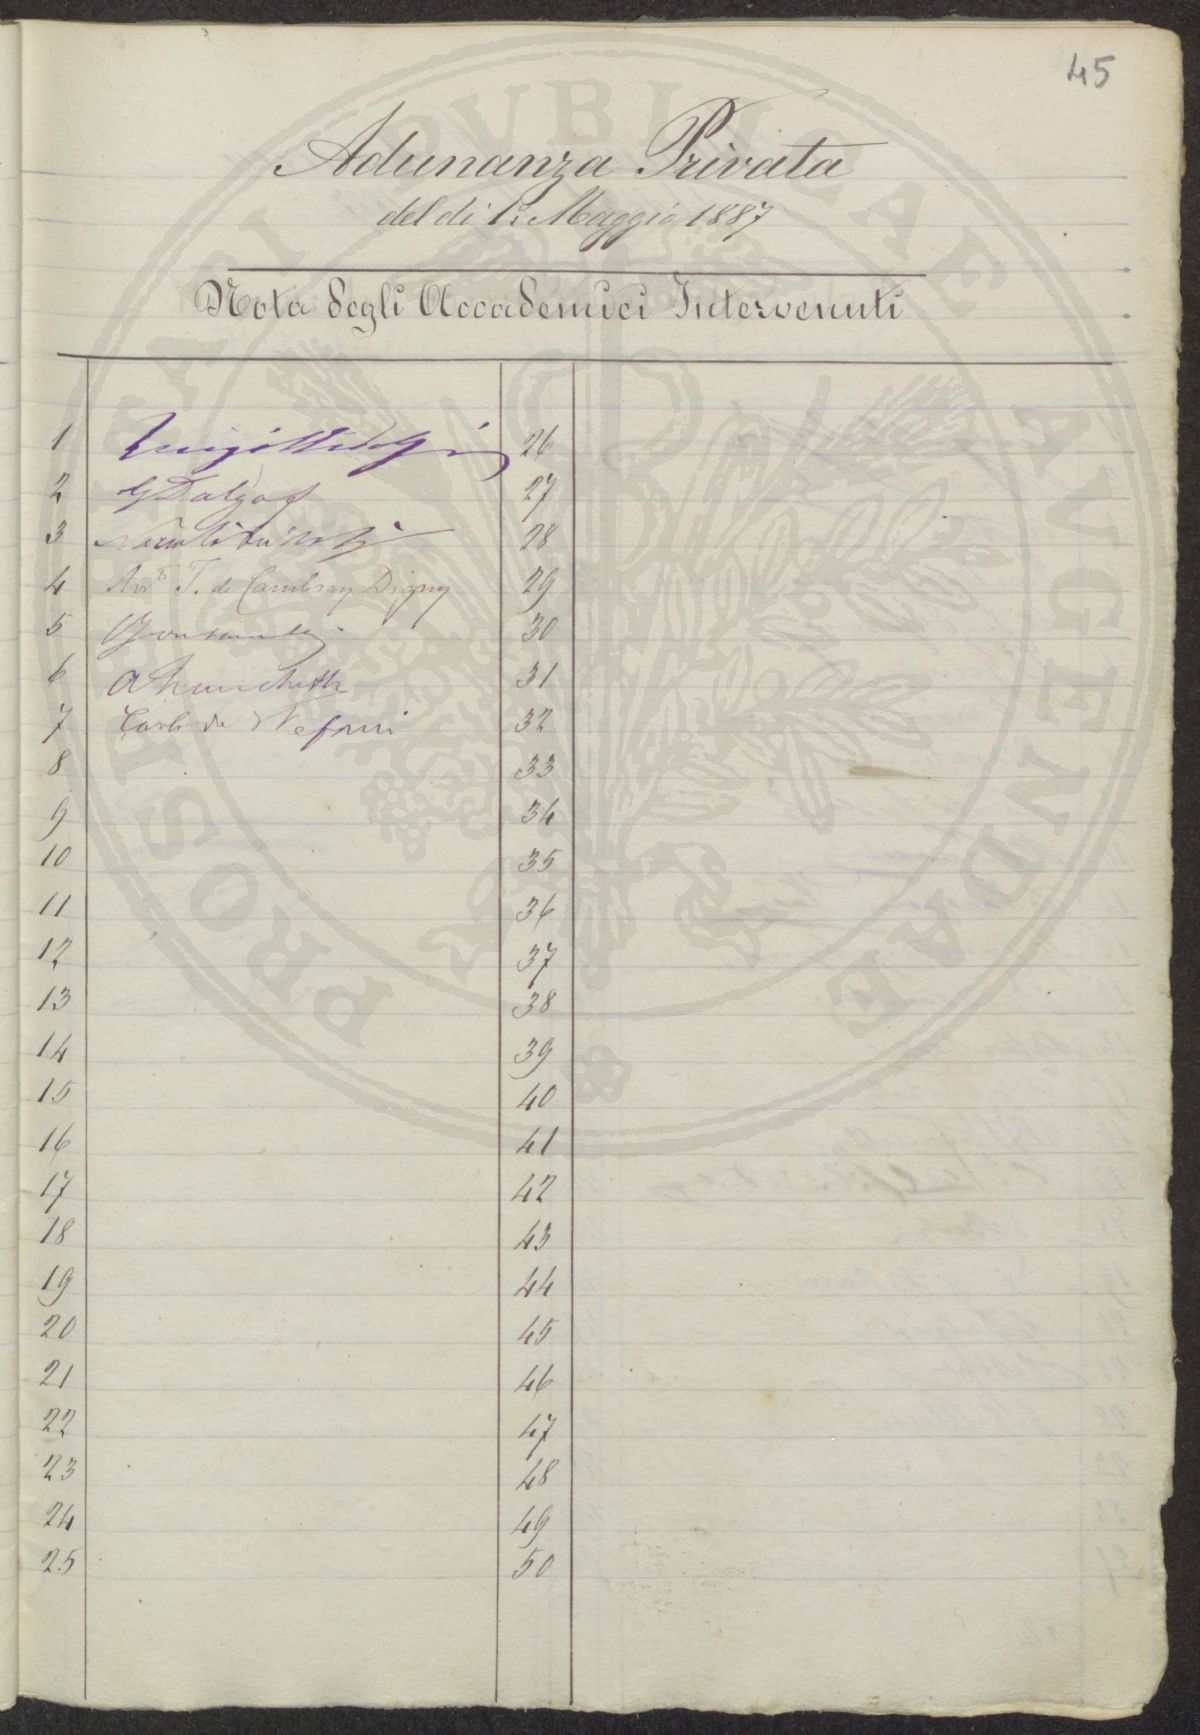 45
Adunanza Privata
del dì 1. Maggio 1887
Nota degli Accademici Intervenuti
1 26
2 G Dalgas 27
3 28
4 Avv. T. de Cambray Digny 29
5 30
6 31
7 Carlo de Stefani 32
8 33
9 34
10 35
11 36
12 37
13 38
14 39
15 40
16 41
17 42
18 43
19 44
20 45
21 46
22 47
23 48
24 49
25 50
PROSPERITATI PUBLICAE AUGENDAE